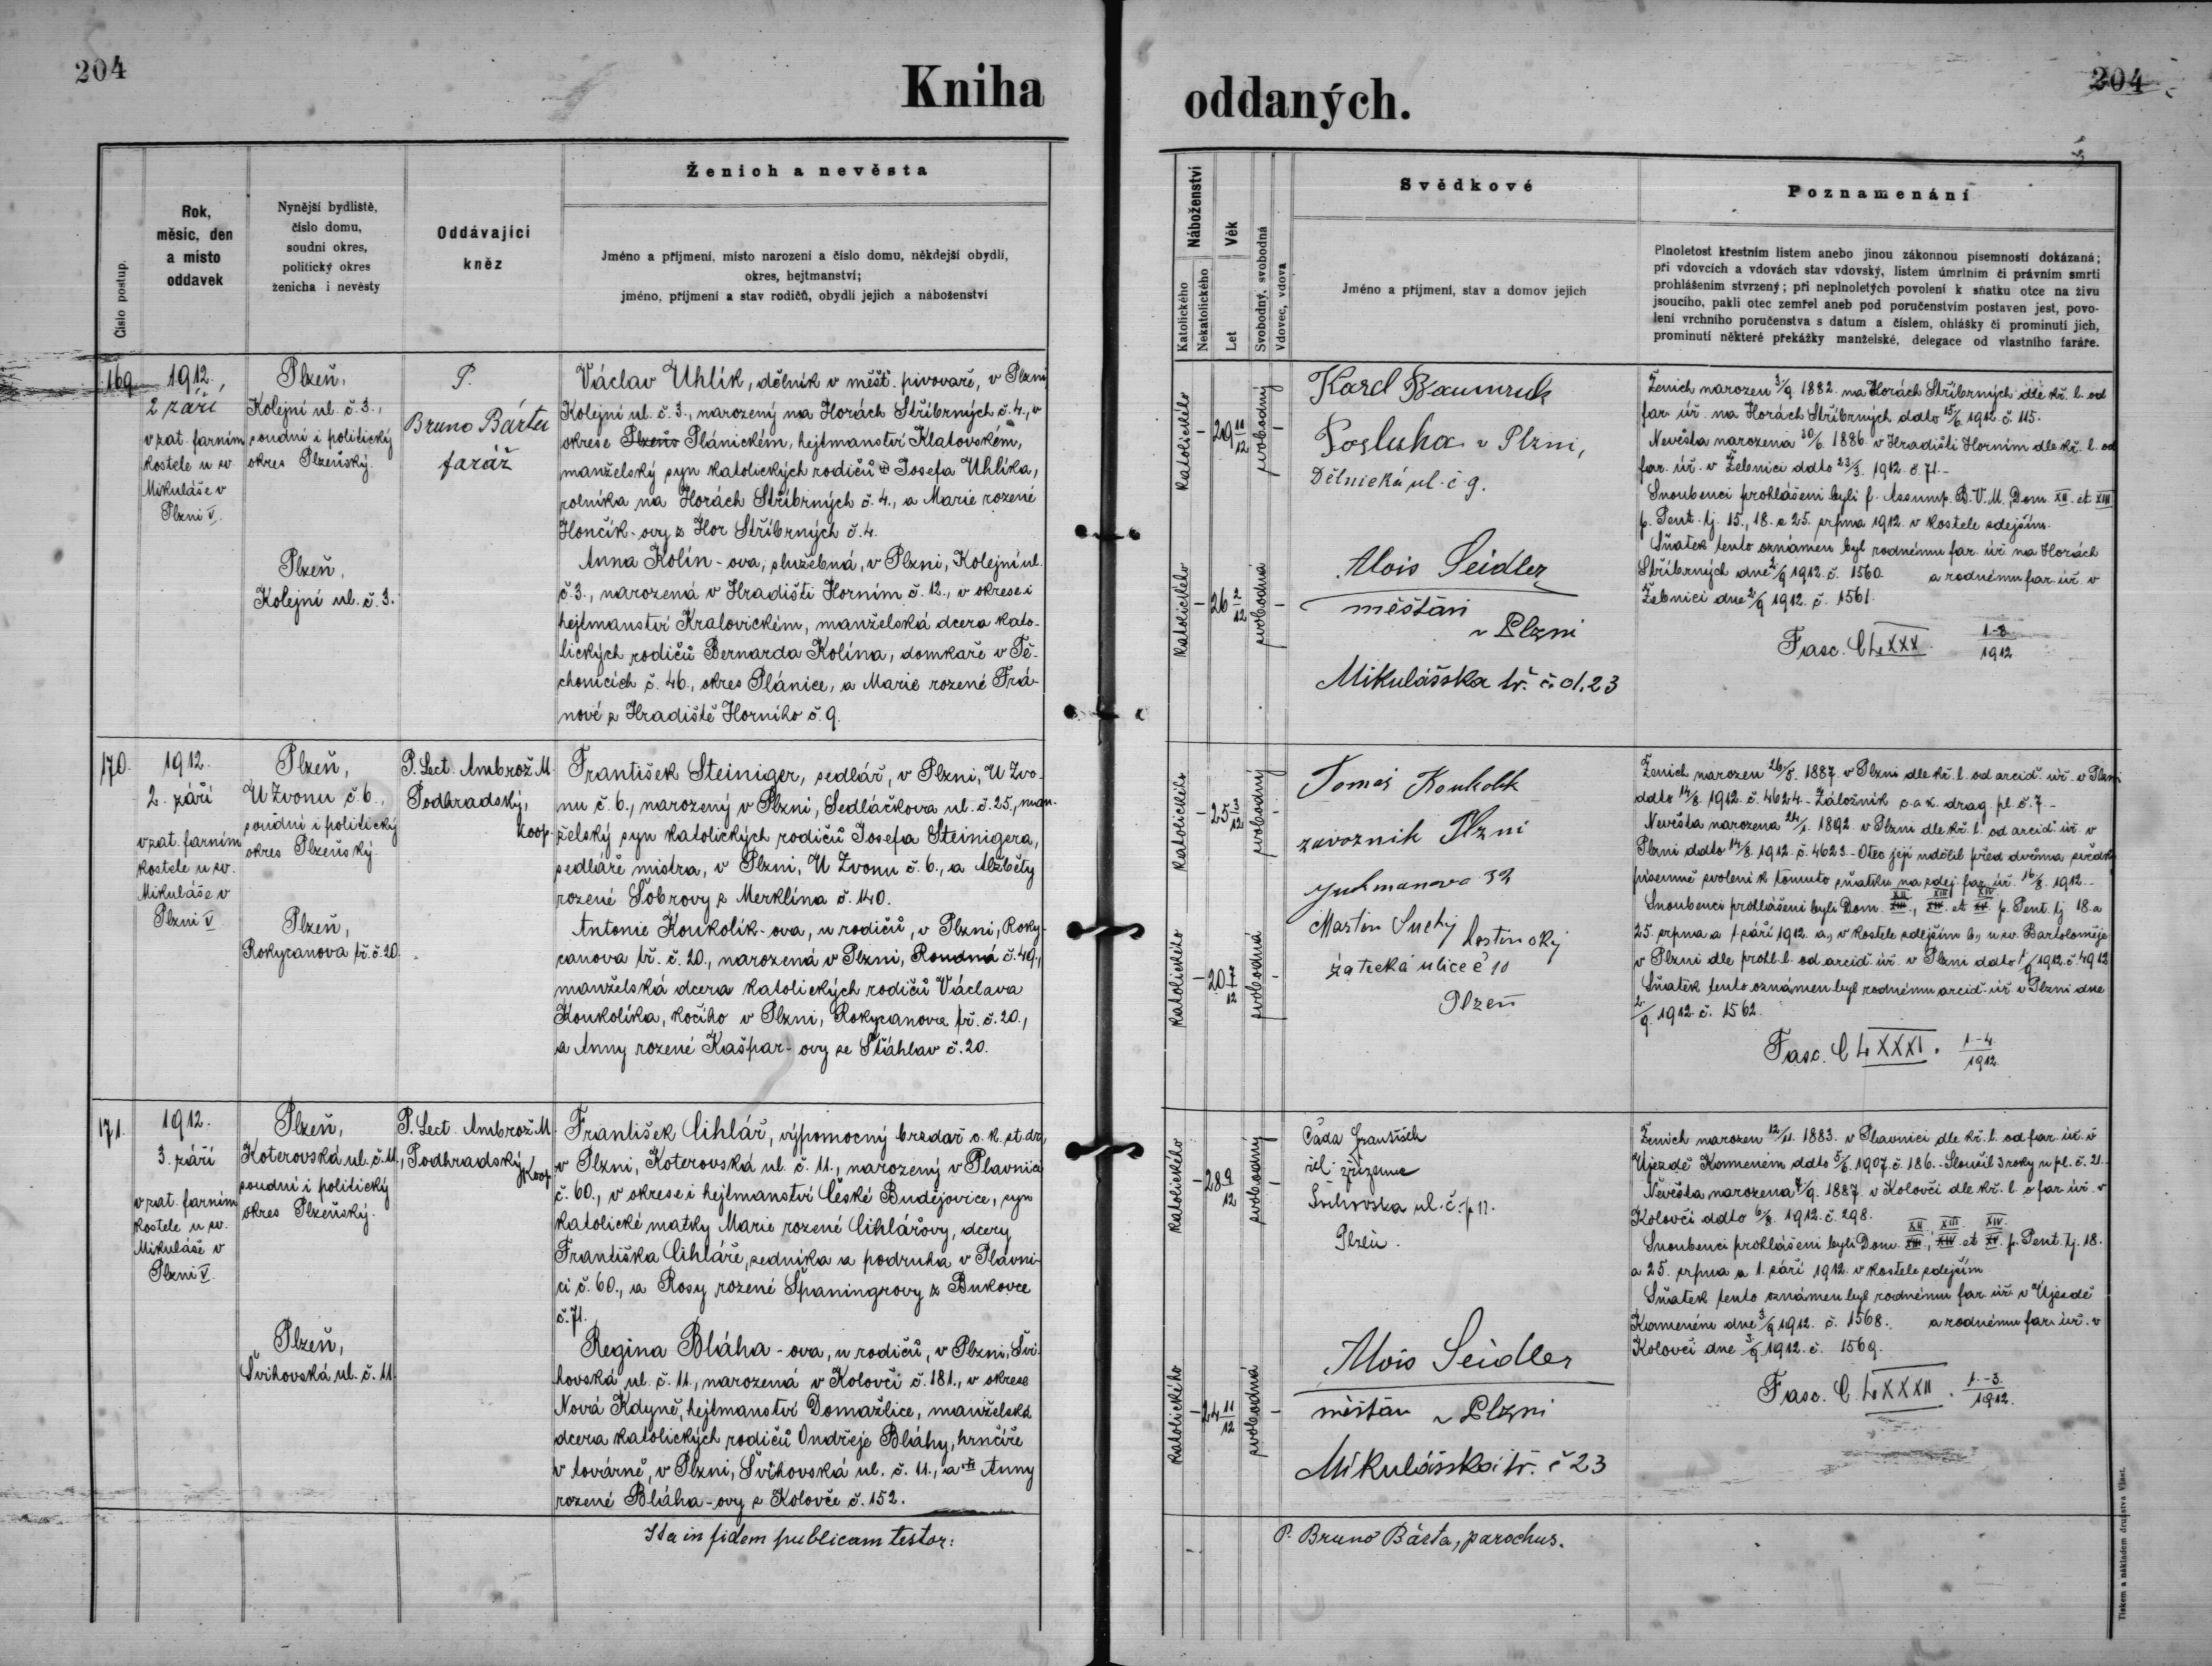 204
Kniha
oddaných.
204
Číslo postup.
Rok,
měsíc, den
a místo
oddavek
Nynější bydliště,
číslo domu,
soudní okres,
politický okres
ženicha i nevěsty
Oddávající
kněz
Ženich a nevěsta
Jméno a příjmení, místo narození a číslo domu, někdejší obydlí,
okres, hejtmanství;
jméno, příjmení a stav rodičů, obydlí jejich a náboženství
Náboženství
Katolického
Nekatolického
Věk
Let
Svobodný, svobodná
Vdovec, vdova
Svědkové
Jméno a příjmení, stav a domov jejich
Poznamenání
Plnoletost křestním listem anebo jinou zákonnou písemností dokázaná;
při vdovcích a vdovách stav vdovský, listem úmrtním či právním smrti
prohlášením stvrzený; při neplnoletých povolení k sňatku otce na živu
jsoucího, pakli otec zemřel aneb pod poručenstvím postaven jest, povo-
lení vrchního poručenstva s datum a číslem, ohlášky či prominutí jich,
prominutí některé překážky manželské, delegace od vlastního faráře.
169.
1912.,
2 září
v zat. farním
kostele u sv.
Mikuláše v
Plzni V.
Plzeň,
Kolejní ul. č. 3.,
soudní i politický
okres Plzeňský.
Plzeň,
Kolejní ul. č. 3.
P.
Bruno Bárta
farář
Václav Uhlík, dělník v měšť. pivovaře, v Plzni
Kolejní ul. č. 3., narozený na Horách Stříbrných č. 4., v
okrese Plzeňs Plánickém, hejtmanství Klatovském,
manželský syn katolických rodičů Josefa Uhlíka,
rolníka na Horách Stříbrných č. 4., a Marie rozené
Hončík-ovy z Hor Stříbrných č. 4.
Anna Kolín-ova, služebná, v Plzni, Kolejní ul.
č. 3., narozená v Hradišti Horním č. 12., v okrese i
hejtmanství Kralovickém, manželská dcera kato-
lických rodičů Bernarda Kolína, domkaře v Tě-
chonicích č. 46., okres Plánice, a Marie rozené Frá-
nové z Hradiště Horního č. 9.
katolického
-
29 11/12
svobodný
-
katolického
-
26 2/12
svobodná
-
Karel Baumruk
Posluha v Plzni,
Dělnická ul. č 9.
Alois Seidler
měšťan
v Plzni
Mikulášska tř. č. 23
Ženich narozen 3/9. 1882. na Horách Stříbrných dle kř. l. od
far. úř. na Horách Stříbrných ddto 15/6 1912. č. 115.
Nevěsta narozena 30/6. 1886. v Hradišti Horním dle kř. l. od
far. úř. v Žebnici ddto 23/3. 1912. č 71.-
Snoubenci prohlášeni byli f. Assump. B. V. M., Dom. XII. et XIII
p. Pent. tj. 15., 18. a 25. srpna 1912. v kostele zdejším.
Sňatek tento oznámen byl rodnému far. úř. na Horách
Stříbrných dne 2/9 1912. č. 1560. a rodnému far. úř. v
Žebnici dne 2/9 1912. č. 1561.
Fasc. C LXXX. 1-3/1912
170.
1912.
2. září
v zat. farním
kostele u sv.
Mikuláše v
Plzni V.
Plzeň,
U Zvonu č. 6.,
soudní i politický
okres Plzeňský.
Plzeň,
Rokycanova tř. č. 20.
P. Lect. Ambrož M.
Podhradský,
koop.
František Steiniger, sedlář, v Plzni, U Zvo-
nu č. 6., narozený v Plzni, Sedláčkova ul. č. 25., man-
želský syn katolických rodičů Josefa Steinigera,
sedláře mistra, v Plzni, U Zvonu č. 6., a Alžběty
rozené Šobrovy z Merklína č. 140.
Antonie Koukolík-ova, u rodičů, v Plzni, Roky-
canova tř. č. 20., narozená v Plzni, Roudná č. 49.,
manželská dcera katolických rodičů Václava
Koukolíka, kočího v Plzni, Rokycanova tř. č. 20.,
a Anny rozené Kašpar-ovy se Šťáhlav č. 20.
katolického
-
25 3/12
svobodný
-
katolického
-
20 7/12
svobodná
-
Tomáš Koukolík
zavoznik Plzni
Jushmanova 32
Martin Suchý hostinský
žatecká ulice č 10
Plzeň
Ženich narozen 26/5. 1887. v Plzni dle kř. l. od arcid. úř. v Plzni
ddto 14/8. 1912. č. 4624.- Záložník c. a k. drag. pl. č. 7.-
Nevěsta narozena 24/1. 1892. v Plzni dle kř. l. od arcid. úř. v
Plzni ddto 14/8. 1912. č. 4623.- Otec její udělil před dvěma svědky
písemně svolení k tomuto sňatku na zdej. far. úř. 16/8. 1912.-
XII XIII XIV
Snoubenci prohlášeni byli Dom. XIII., XIV. et XV. p. Pent. tj 18. a
25. srpna a 1. září 1912. a, v kostele zdejším b, u sv. Bartoloměje
v Plzni dle prohl. l. od arcid. úř. v Plzni ddto 1/9 1912. č. 4912
Sňatek tento oznámen byl rodnému arcid. úř. v Plzni dne
2/9. 1912. č. 1562.
Fasc. C LXXXI. 1-4/1912
171.
1912.
3. září
v zat. farním
kostele u sv.
Mikuláše v
Plzni V.
Plzeň,
Koterovská ul. č. 11.,
soudní i politický
okres Plzeňský.
Plzeň,
Švihovská ul. č. 11.
P. Lect. Ambrož M.
Podhradský,
koop.
František Cihlář, výpomocný brzdař c. k. st. dr.,
v Plzni, Koterovská ul. č. 11., narozený v Plavnici
č. 60., v okrese i hejtmanství České Budějovice, syn
katolické matky Marie rozené Cihlářovy, dcery
Františka Cihláře, zedníka a podruha v Plavni-
ci č. 60., a Rosy rozené Španingrovy z Bukovce
č. 71.
Regina Bláha-ova, u rodičů, v Plzni, Švi-
hovská ul. č. 11., narozená v Kolovči č. 181., v okrese
Nová Kdyně, hejtmanství Domažlice, manželská
dcera katolických rodičů Ondřeje Bláhy, hrnčíře
v továrně, v Plzni, Švihovská ul. č. 11., a Anny
rozené Bláha-ovy z Kolovče č. 152.
katolického
-
28 9/12
svobodný
-
katolického
-
24 11/12
svobodná
-
Čada František
žel. zřízenec
ul. č. 11.
Plzeň.
Alois Seidler
měšťan v Plzni
Mikulášská tř. č 23
Ženich narozen 12/11. 1883. v Plavnici dle kř. l. od far. úř. v
Újezdě Kameném ddto 5/6. 1907. č. 186.- Sloužil 3 roky u pl. č. 21.-
Nevěsta narozena 7/9. 1887. v Kolovči dle kř. l. o far. úř. v
Kolovči ddto 6/8. 1912. č. 298.
XII. XIII. XIV.
Snoubenci prohlášeni byli Dom. XIII., XIV. et XV. p. Pent. tj. 18.
a 25. srpna a 1. září 1912. v kostele zdejším.
Sňatek tento oznámen byl rodnému far. úř. v Újezdě
Kameném dne 3/9 1912. č. 1568. a rodnému far. úř. v
Kolovči dne 3/9 1912. č. 1569.
Fasc. C. LXXXII. 1.-3./1912.
Ita in fidem publicam testor:
P. Bruno Bárta, parochus.
Tiskem a nákladem družstva Vlast.